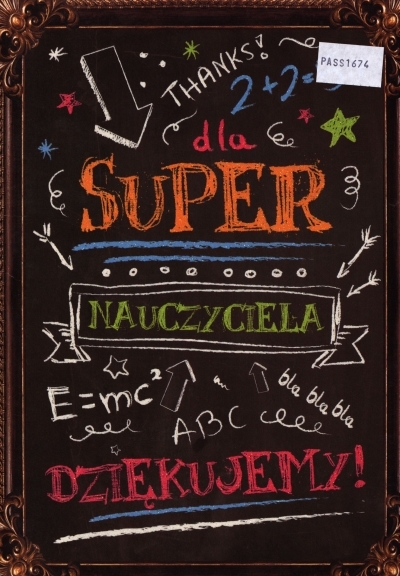 THANKS!
PASS1674
2+2=5
dla
SUPER
NAUCZYCIELA
E=mc²
bla bla bla
ABC
DZIĘKUJEMY!